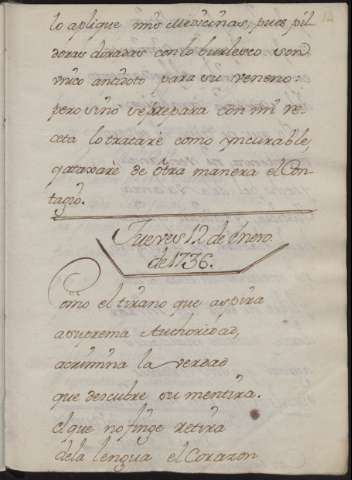 lo aplique mis Medicinas, pues pil
doras doradas con lo burlesco son
vnico antidoto para su veneno:
pero sino se repara con mi re-
ceta lo tratarè como yncurable,
y atajarè de otra manera el Con-
tagio.
Jueves 12 de Enero
de 1736.
Como el tirano que aspira
a suprema Authoridad,
acrimina la verdad
que descubre su mentira.
el que no finge retira
de la lengua el Corazon